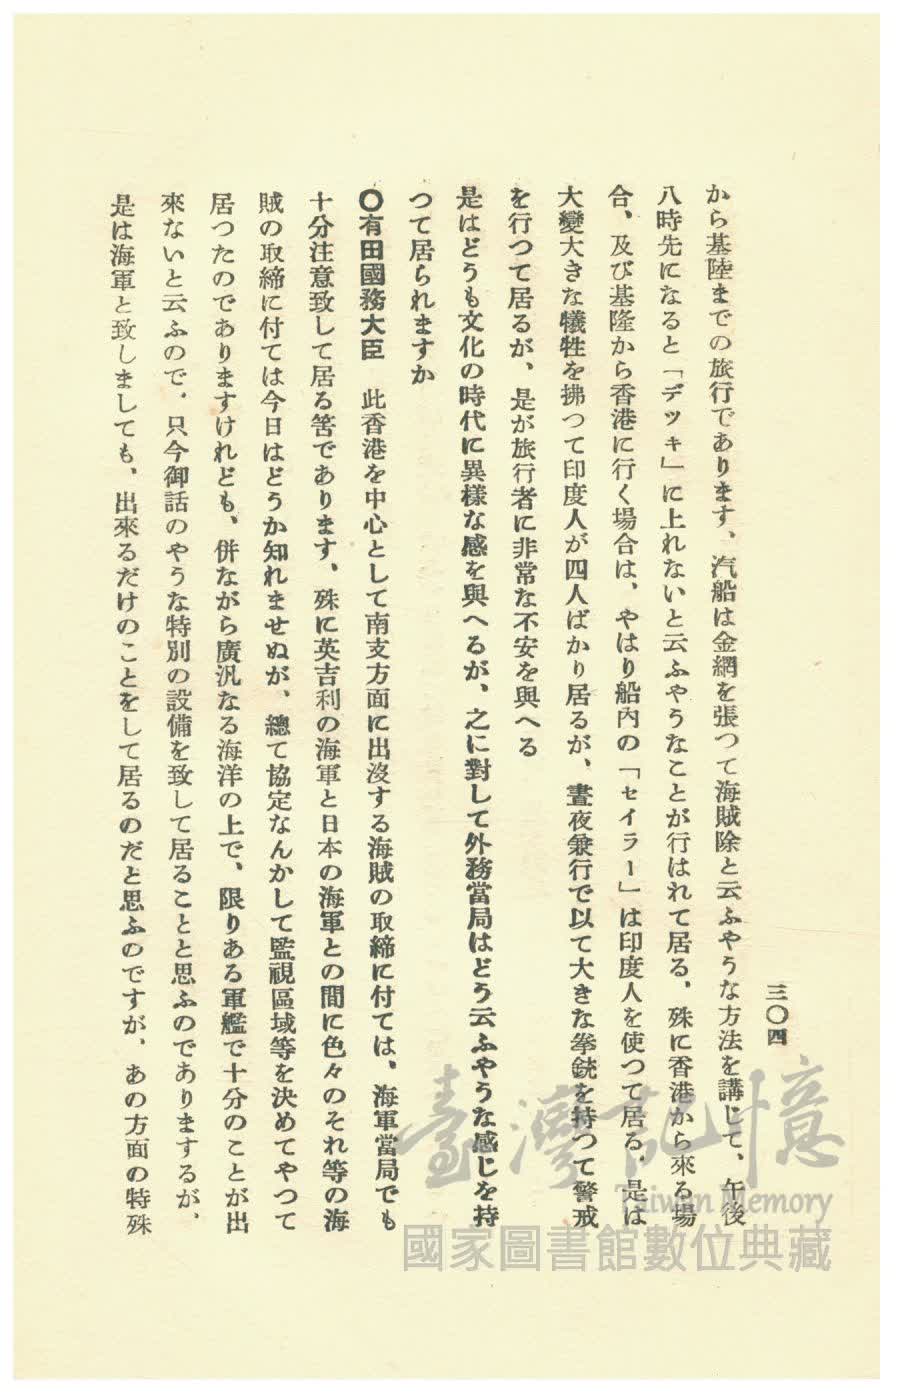 三〇四
から基陸までの旅行であります、汽船は金網を張つて海賊除と云ふやうな方法を講じて、午後
八時先になると「デツキ」に上れないと云ふやうなことが行はれて居る、殊に香港から來る場
合、及び基隆から香港に行く場合は、やはり船內の「セイラー」は印度人を使つて居る、是は
大變大きな犧牲を拂つて印度人が四人ばかり居るが、晝夜兼行で以て大きな拳銃を持つて警戒
を行つて居るが、是が旅行者に非常な不安を與へる
是はどうも文化の時代に異樣な感を與へるが、之に對して外務當局はどう云ふやうな感じを持
つて居られますか
〇有田國務大臣　此香港を中心として南支方面に出沒する海賊の取締に付ては、海軍當局でも
十分注意致して居る筈であります、殊に英吉利の海軍と日本の海軍との間に色々のそれ等の海
賊の取締に付ては今日はどうか知れませぬが、總て協定なんかして監視區域等を決めてやつて
居つたのでありますけれども、併ながら廣汎なる海洋の上で、限りある軍艦で十分のことが出
來ないと云ふので、只今御話のやうな特別の設備を致して居ることと思ふのでありまするが、
是は海軍と致しましても、出來るだけのことをして居るのだと思ふのですが、あの方面の特殊
臺灣記憶
Taiwan Memory
國家圖書館數位典藏